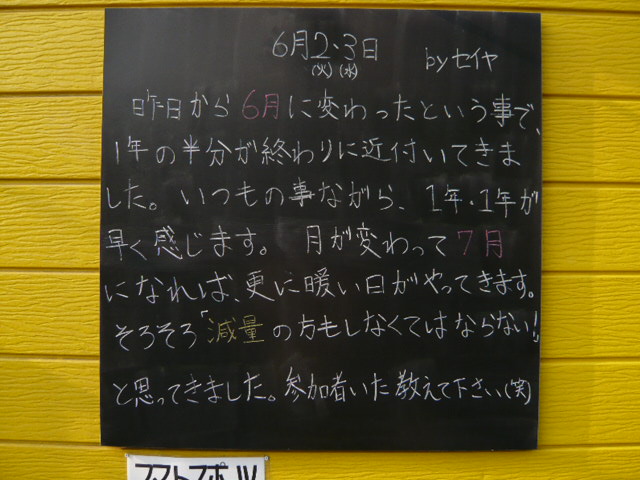 6月2・3日 byセイヤ
(火)(水)
昨日から6月に変わったという事で、
1年の半分が終わりに近付いてきま
した。いつもの事ながら、1年・1年が
早く感じます。月が変わって7月
になれば、更に暖い日がやってきます。
そろそろ「減量の方もしなくてはならない!」
と思ってきました。参加者いた教えて下さい(笑)